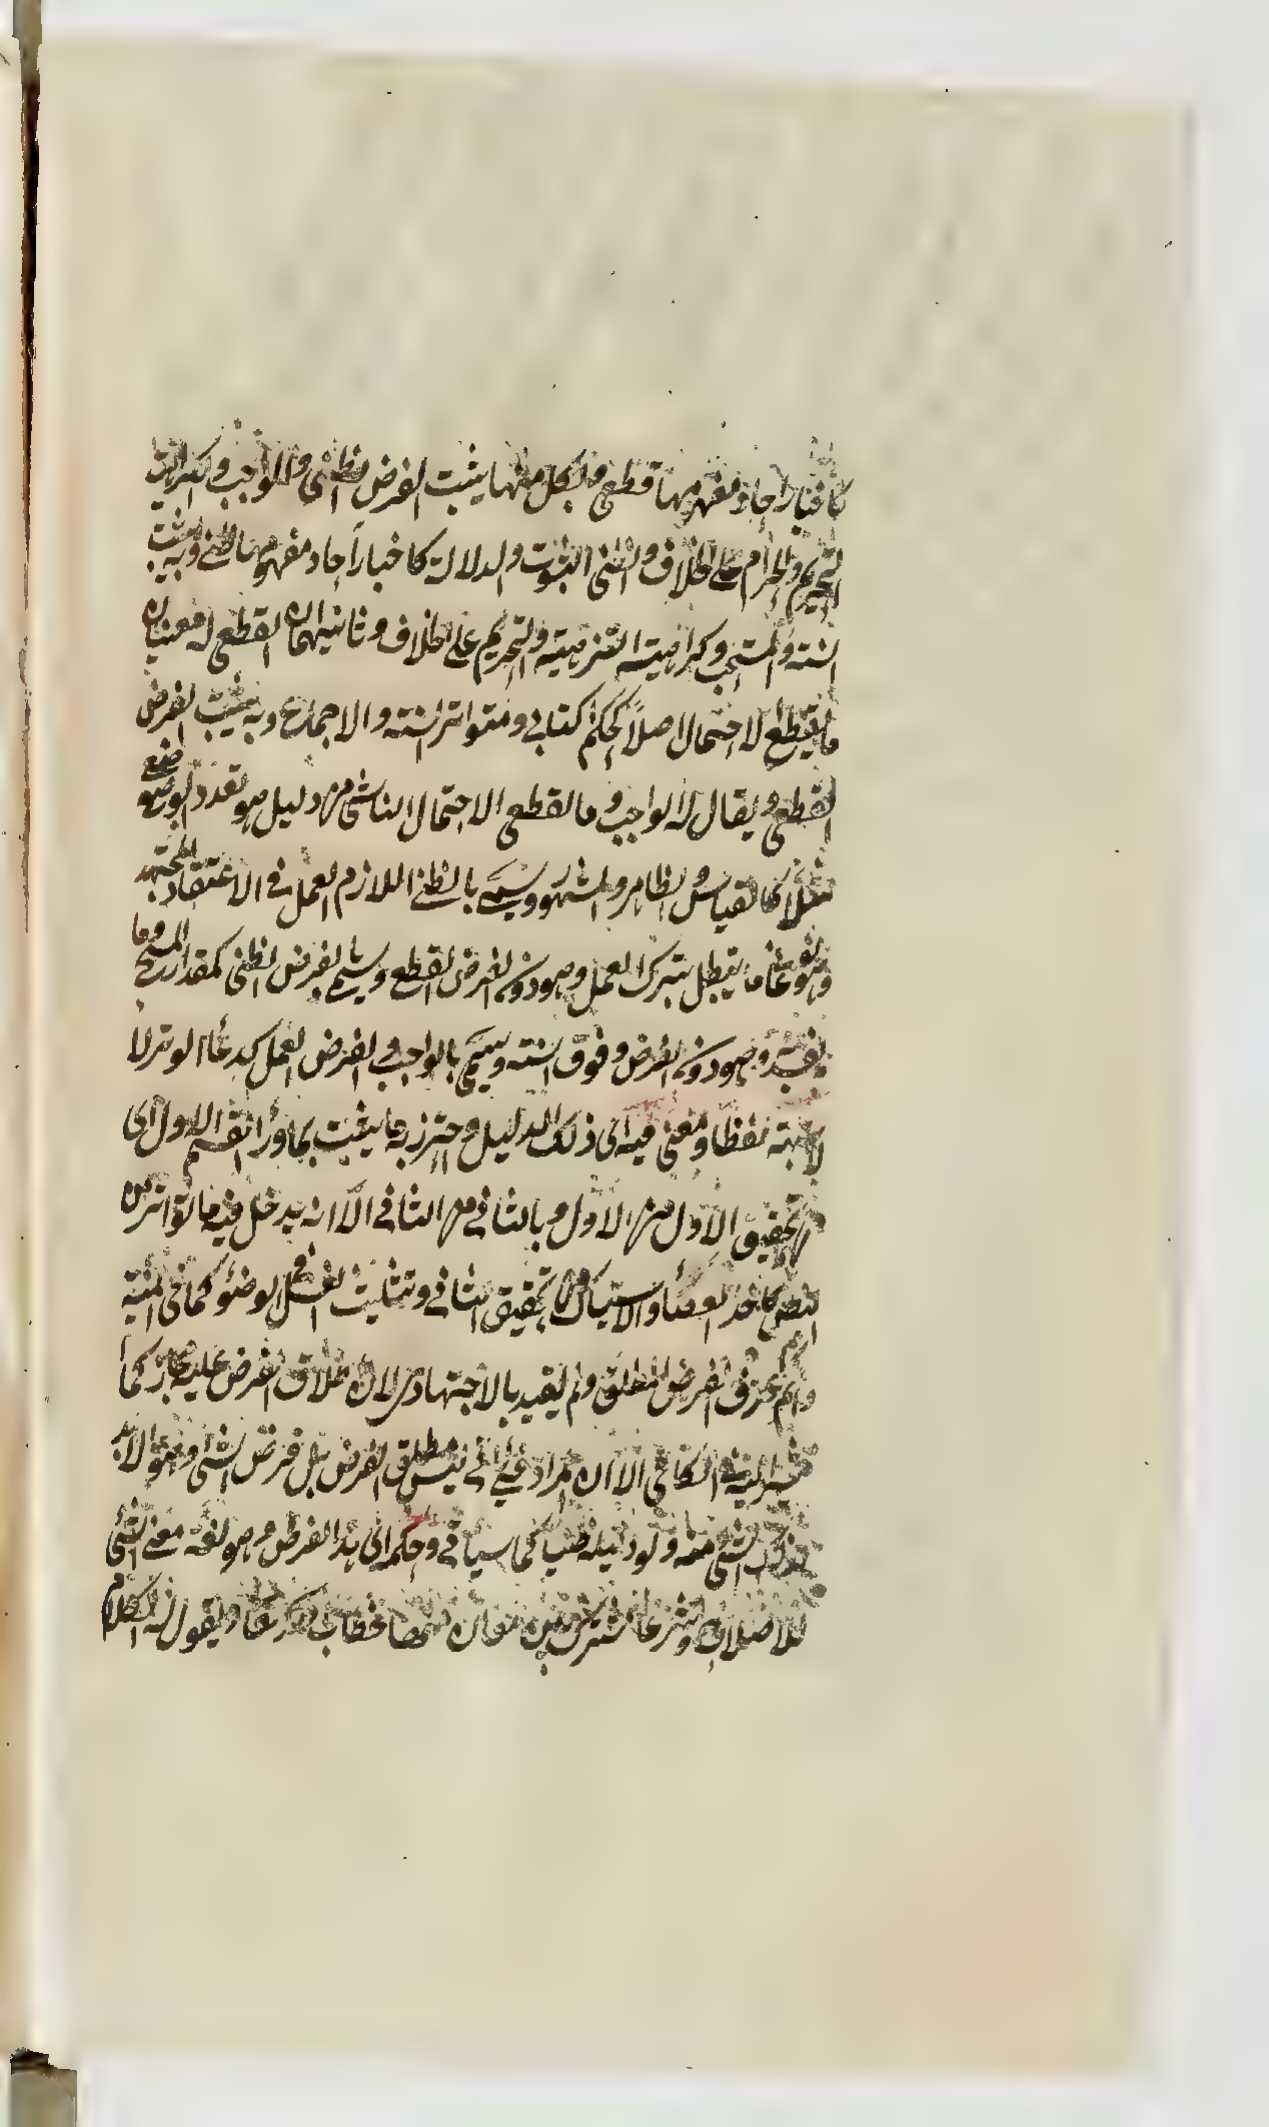 كاخبار احاد مفهومها قطعى وبكل منها يثبت الفرض الظنى والواجب وكراهية
التحريم والحرام على الخلاف والظنى الثبوت والدلالة كاخبار احاد مفهومها ظنى وبه يثبت
السنة والمستحب وكراهية التنزيهية والتحريم على الخلاف وثانيهما ان القطع له معنيان
ما يقطع الاحتمال اصلاً كحكم كتاب ومتواتر السنة والاجماع وبه يثبت الفرض
القطعى ويقال له الواجب وما لقطع الاحتمال الناشى من دليل هو تعدد الوضع
مثلاً كالقياس والظاهر والمشهور ويسمى بالظنى اللازم العمل فى الاعتقاد المجتهد
وهو نوعان ما يبطل بترك العمل وهو دون الفرض القطع ويسمى بالفرض الظنى كمقدار المسح وما
يفسد وهو دون الفرض وفوق السنة ويسمى بالواجب والفرض العمل كدعاء الوتر لا
لفظا ومعنى فيه اى ذلك الدليل واحترز به عما يثبت بما وراء القسم الاول اى
تحقيق الاول من الاول وبالثانى من الثانى الا انه يدخل فيه ما تواتر من
النص كاخذ العصا والاستياك من تحقيق الثانى وتثليث الغسل فى الوضوء كما فى المنية
وانما عرف الفرض المطلق ولم يقيد بالاجتهادى لان اطلاق الفرض عليه مجاز كما
يشير اليه الكافى الا ان المراد ليس مطلق الفرض بل فرض الشئ وهو لا بد
الشئ منه ولو دليله ظنيا كما سياتى وحكمه اى هذا الفرض وهو لغة معنى الشئ
للاصلاح وشرعا مشترك بين معان خطاب ويقول له الكلام